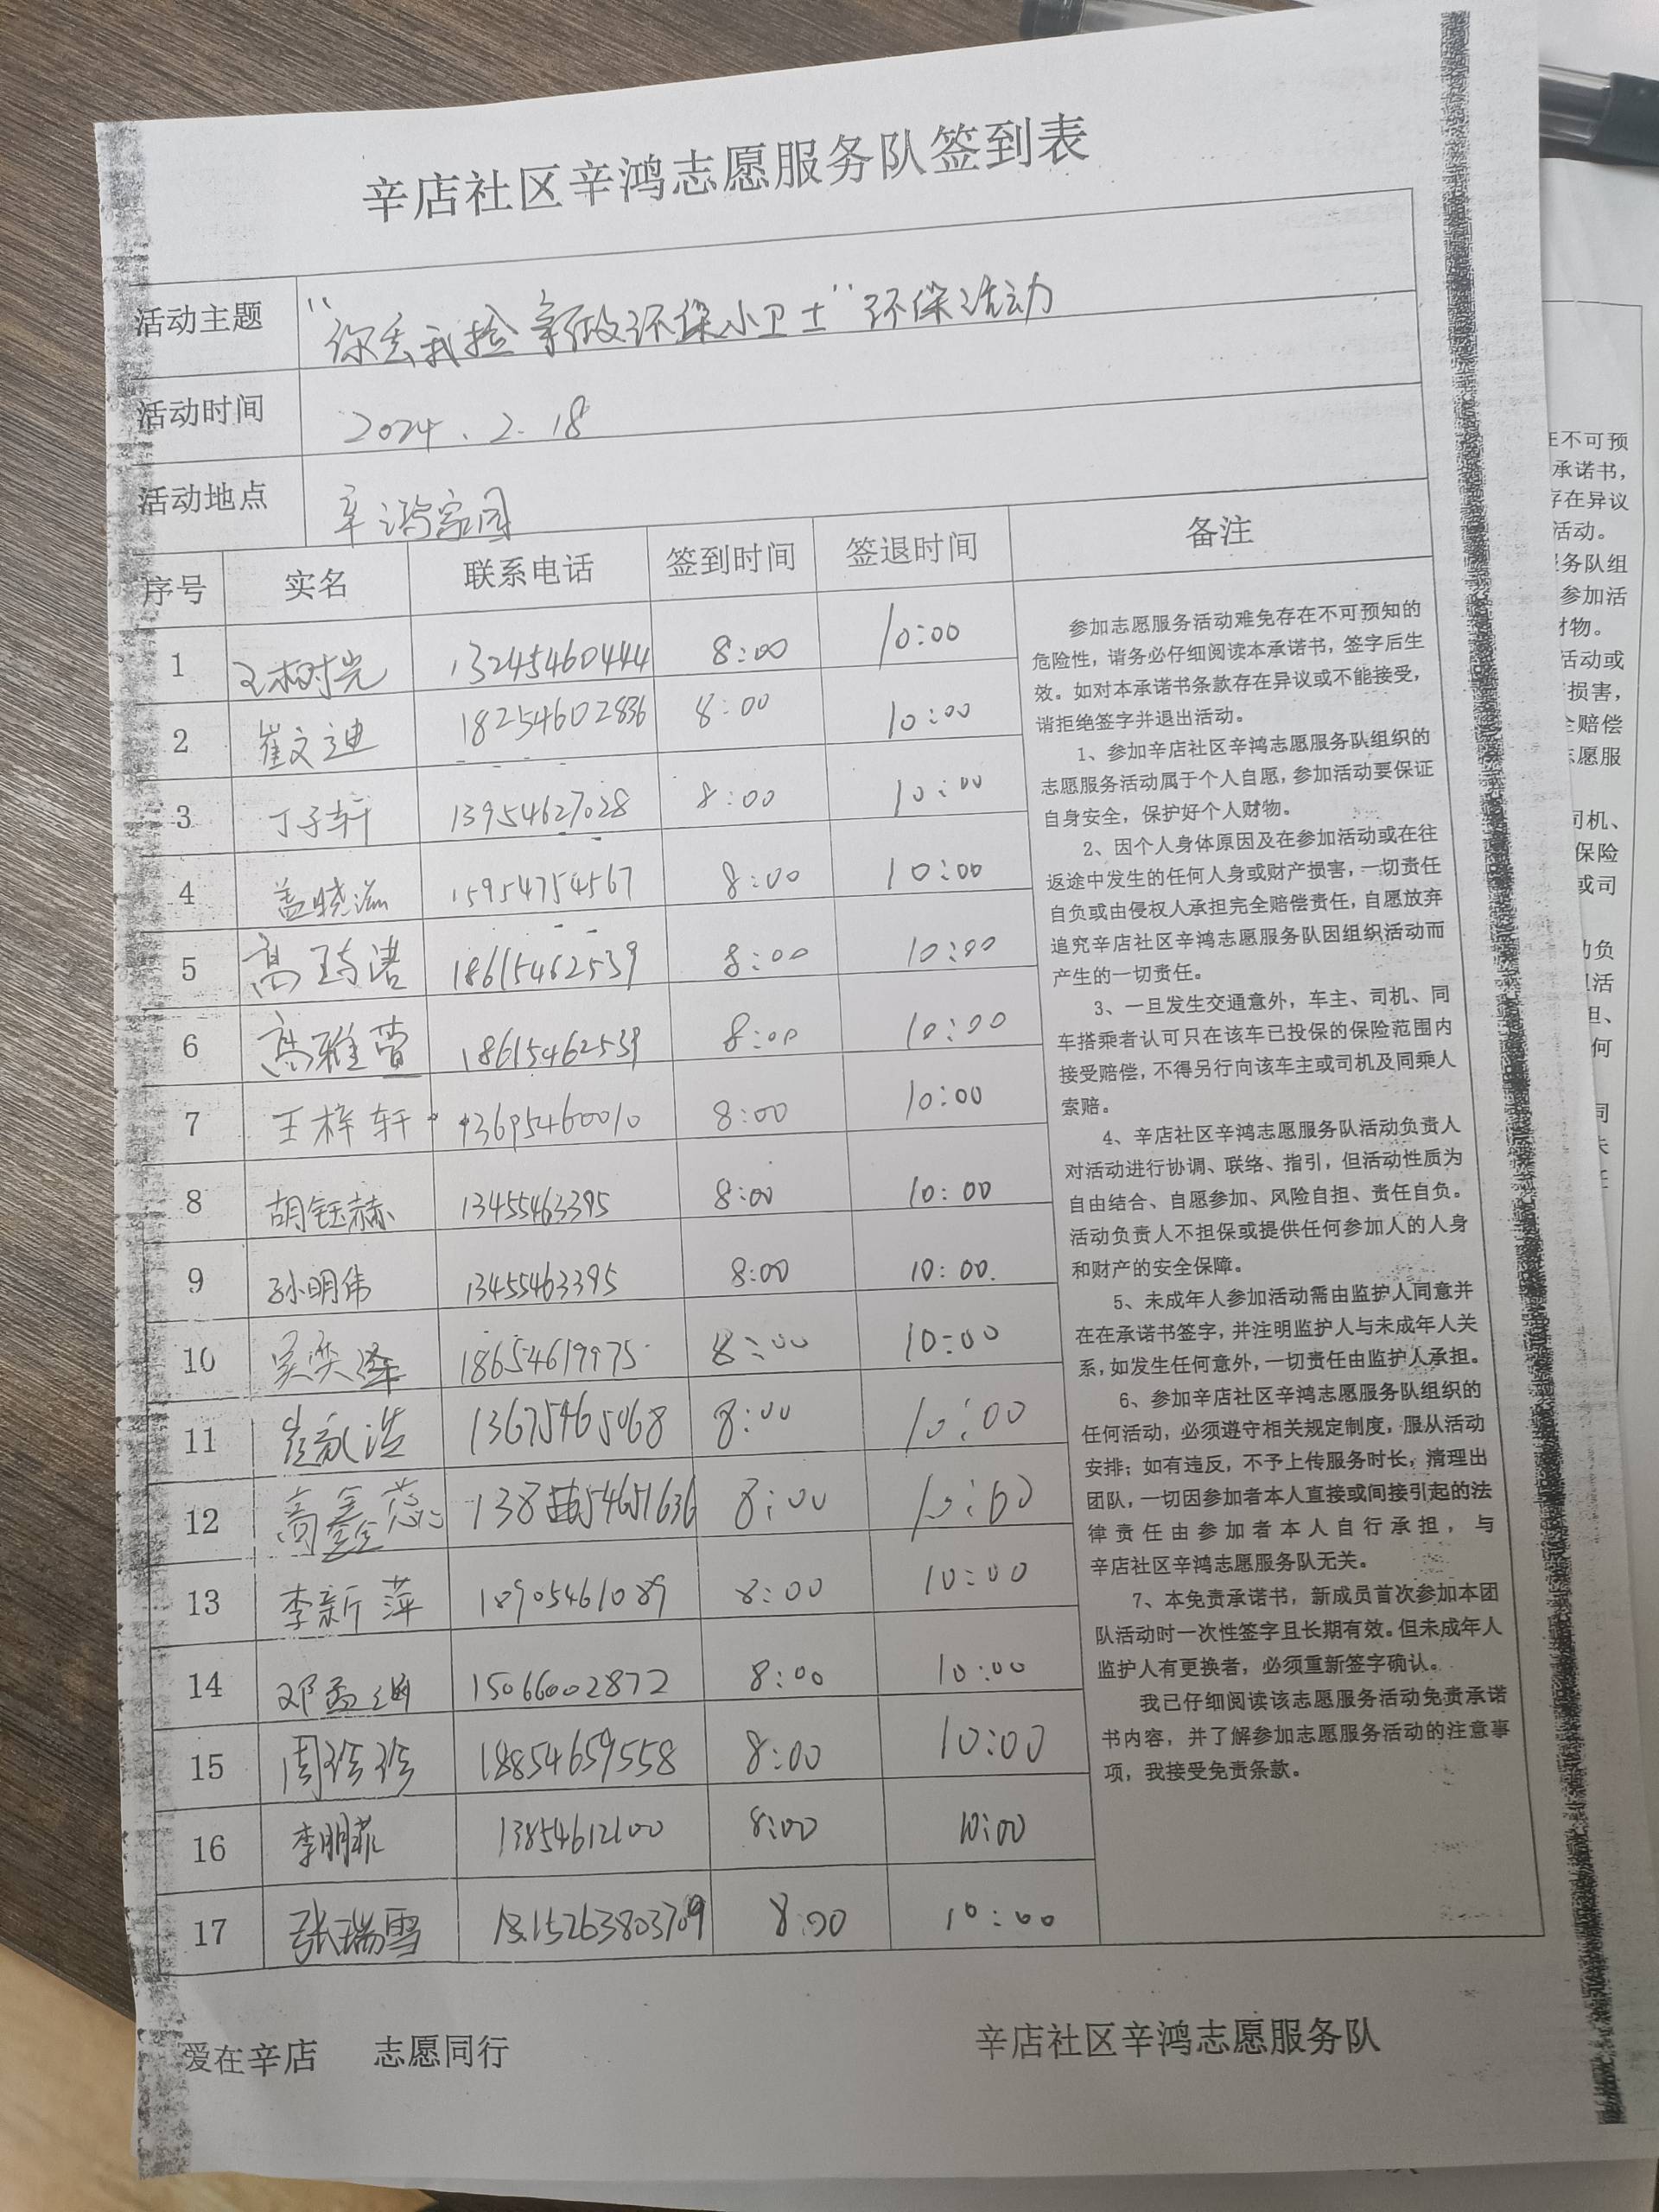 辛店社区辛鸿志愿服务队签到表
活动主题 “你丢我捡 争做环保小卫士”环保活动
活动时间 2024.2.18
活动地点 辛鸿家园
序号 实名 联系电话 签到时间 签退时间 备注
1 王树光 13245460444 8:00 10:00
2 崔文迪 18254602836 8:00 10:00
3 丁子轩 13954627028 8:00 10:00
4 盖晓 15954754567 8:00 10:00
5 高 18615462539 8:00 10:00
6 高雅萱 18615462539 8:00 10:00
7 王梓轩 13695460010 8:00 10:00
8 胡钰赫 13455463395 8:00 10:00
9 孙明伟 13455463395 8:00 10:00
10 吴奕泽 18654619975 8:00 10:00
11 崔 浩 13675465068 8:00 10:00
12 高鑫蕊 13854651636 8:00 10:00
13 李新萍 18905461089 8:00 10:00
14 邓孟 15066002872 8:00 10:00
15 周 18854659558 8:00 10:00
16 李明菲 13854612100 8:00 10:00
17 张瑞雪 15263803709 8:00 10:00
参加志愿服务活动难免存在不可预知的
危险性，请务必仔细阅读本承诺书，签字后生
效。如对本承诺书条款存在异议或不能接受，
请拒绝签字并退出活动。
1、参加辛店社区辛鸿志愿服务队组织的
志愿服务活动属于个人自愿，参加活动要保证
自身安全，保护好个人财物。
2、因个人身体原因及在参加活动或在往
返途中发生的任何人身或财产损害，一切责任
自负或由侵权人承担完全赔偿责任，自愿放弃
追究辛店社区辛鸿志愿服务队因组织活动而
产生的一切责任。
3、一旦发生交通意外，车主、司机、同
车搭乘者认可只在该车已投保的保险范围内
接受赔偿，不得另行向该车主或司机及同乘人
索赔。
4、辛店社区辛鸿志愿服务队活动负责人
对活动进行协调、联络、指引，但活动性质为
自由结合、自愿参加、风险自担、责任自负。
活动负责人不担保或提供任何参加人的人身
和财产的安全保障。
5、未成年人参加活动需由监护人同意并
在在承诺书签字，并注明监护人与未成年人关
系，如发生任何意外，一切责任由监护人承担。
6、参加辛店社区辛鸿志愿服务队组织的
任何活动，必须遵守相关规定制度，服从活动
安排；如有违反，不予上传服务时长，清理出
团队，一切因参加者本人直接或间接引起的法
律责任由参加者本人自行承担，与
辛店社区辛鸿志愿服务队无关。
7、本免责承诺书，新成员首次参加本团
队活动时一次性签字且长期有效。但未成年人
监护人有更换者，必须重新签字确认。
我已仔细阅读该志愿服务活动免责承诺
书内容，并了解参加志愿服务活动的注意事
项，我接受免责条款。
爱在辛店 志愿同行 辛店社区辛鸿志愿服务队